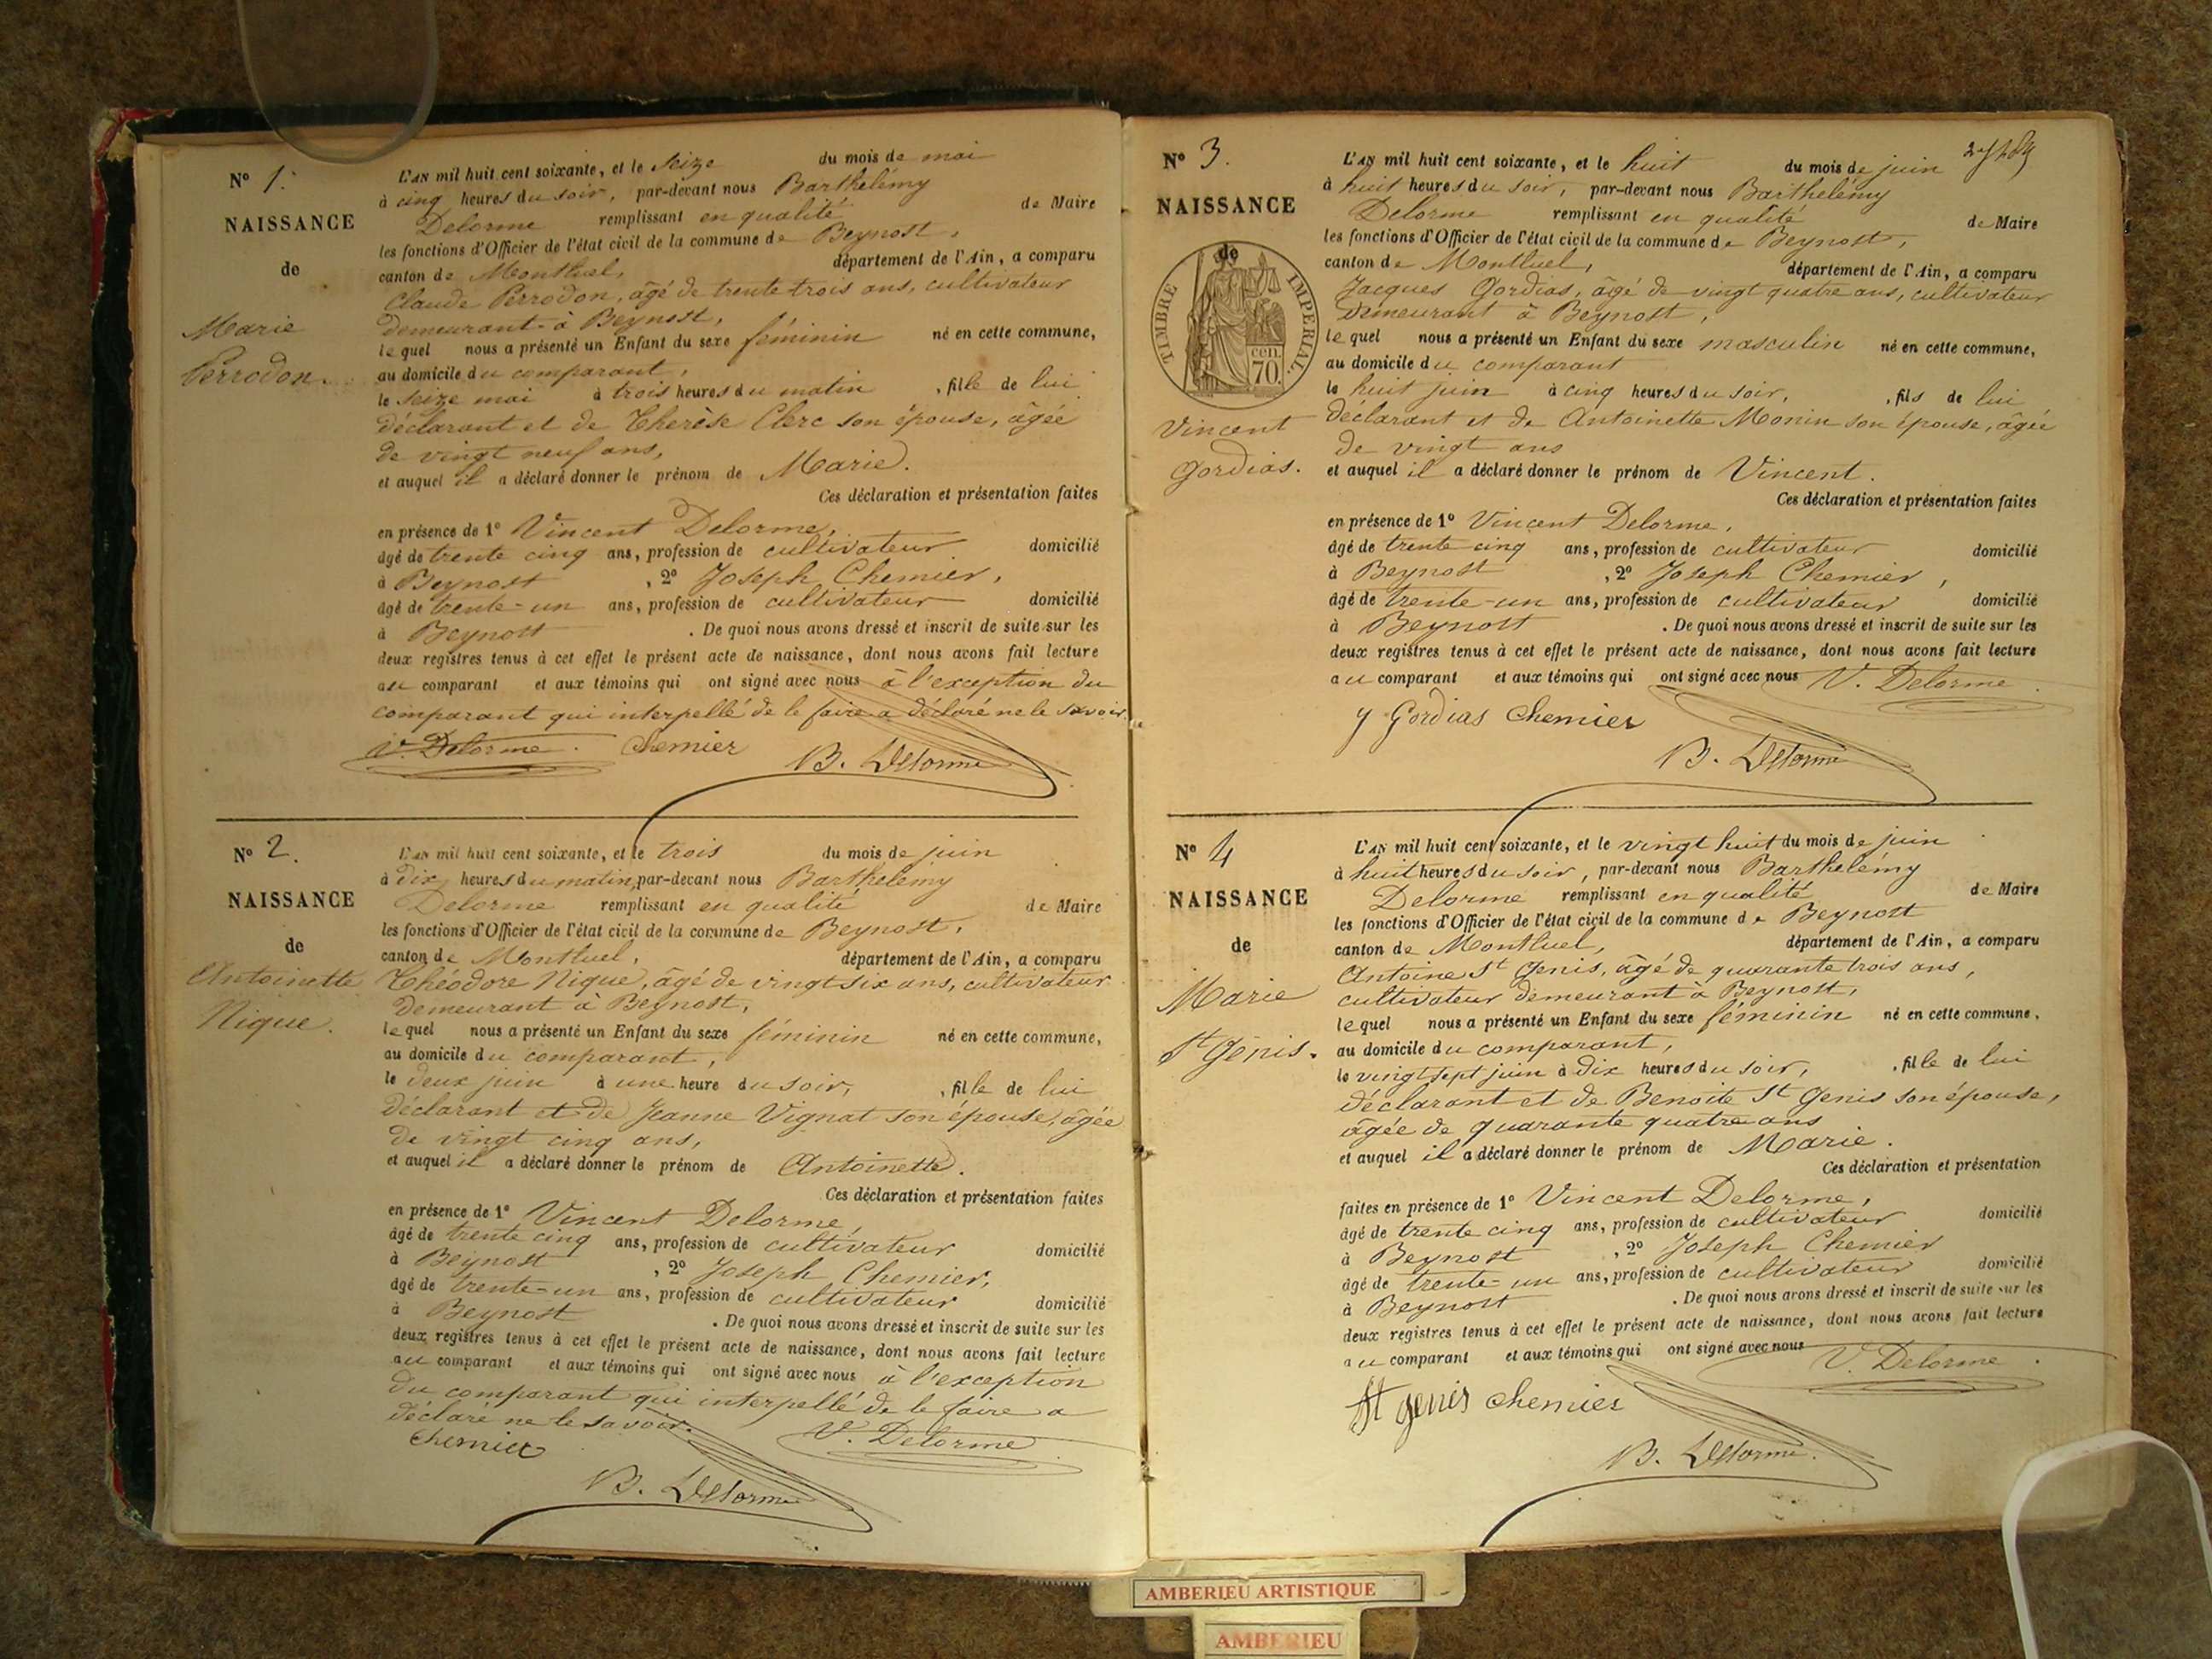 N° 1.
NAISSANCE
de
Marie
Perrodon.
L'AN mil huit cent soixante, et le seize du mois de mai
à cinq heures du soir, par-devant nous Barthelémy
Delorme remplissant en qualité de Maire
les fonctions d'Officier de l'état civil de la commune de Beynost,
canton de Montluel, département de l'Ain, a comparu
Claude Perrodon, âgé de trente trois ans, cultivateur
demeurant à Beynost,
lequel nous a présenté un Enfant du sexe féminin né en cette commune,
au domicile du comparant,
le seize mai à trois heures du matin, fille de lui
déclarant et de Therèse Clerc son épouse, âgée
de vingt neuf ans,
et auquel il a déclaré donner le prénom de Marie.
Ces déclaration et présentation faites
en présence de 1° Vincent Delorme,
âgé de trente cinq ans, profession de cultivateur domicilié
à Beynost, 2° Joseph Chemier,
âgé de trente-un ans, profession de cultivateur domicilié
à Beynost. De quoi nous avons dressé et inscrit de suite sur les
deux registres tenus à cet effet le présent acte de naissance, dont nous avons fait lecture
au comparant et aux témoins qui ont signé avec nous à l'exception du
comparant qui interpellé de le faire a déclaré ne le savoir.
V. Delorme. Chemier
B. Delorme
N° 2.
NAISSANCE
de
Antoinette
Nique.
L'AN mil huit cent soixante, et le trois du mois de juin
à dix heures du matin, par-devant nous Barthélemy
Delorme remplissant en qualité de Maire
les fonctions d'Officier de l'état civil de la commune de Beynost,
canton de Montluel, département de l'Ain, a comparu
Théodore Nique, âgé de vingt six ans, cultivateur
demeurant à Beynost,
lequel nous a présenté un Enfant du sexe féminin né en cette commune,
au domicile du comparant,
le deux juin à une heure du soir, fille de lui
déclarant et de Jeanne Vignat son épouse, âgée
de vingt cinq ans,
et auquel il a déclaré donner le prénom de Antoinette.
Ces déclaration et présentation faites
en présence de 1° Vincent Delorme,
âgé de trente cinq ans, profession de cultivateur domicilié
à Beynost, 2° Joseph Chemier,
âgé de trente-un ans, profession de cultivateur domicilié
à Beynost. De quoi nous avons dressé et inscrit de suite sur les
deux registres tenus à cet effet le présent acte de naissance, dont nous avons fait lecture
au comparant et aux témoins qui ont signé avec nous à l'exception
du comparant qui interpellé de le faire a
déclaré ne le savoir.
Chemier V. Delorme
B. Delorme
N° 3.
NAISSANCE
de
TIMBRE IMPERIAL
cen.
70.
Vincent
Gordias.
L'AN mil huit cent soixante, et le huit du mois de juin
à huit heures du soir, par-devant nous Barthelémy
Delorme remplissant en qualité de Maire
les fonctions d'Officier de l'état civil de la commune de Beynost,
canton de Montluel, département de l'Ain, a comparu
Jacques Gordias, âgé de vingt quatre ans, cultivateur
demeurant à Beynost,
lequel nous a présenté un Enfant du sexe masculin né en cette commune,
au domicile du comparant
le huit juin à cinq heures du soir, fils de lui
déclarant et de Antoinette Monin son épouse, âgée
de vingt ans
et auquel il a déclaré donner le prénom de Vincent.
Ces déclaration et présentation faites
en présence de 1° Vincent Delorme,
âgé de trente cinq ans, profession de cultivateur domicilié
à Beynost, 2° Joseph Chemier,
âgé de trente-un ans, profession de cultivateur domicilié
à Beynost. De quoi nous avons dressé et inscrit de suite sur les
deux registres tenus à cet effet le présent acte de naissance, dont nous avons fait lecture
au comparant et aux témoins qui ont signé avec nous V. Delorme.
J Gordias Chemier
B. Delorme
N° 4
NAISSANCE
de
Marie
St Genis.
L'AN mil huit cent soixante, et le vingt huit du mois de juin
à huit heures du soir, par-devant nous Barthelémy
Delorme remplissant en qualité de Maire
les fonctions d'Officier de l'état civil de la commune de Beynost
canton de Montluel, département de l'Ain, a comparu
Antoine St Genis, âgé de quarante trois ans,
cultivateur demeurant à Beynost,
lequel nous a présenté un Enfant du sexe féminin né en cette commune,
au domicile du comparant,
le vingt sept juin à dix heures du soir, fille de lui
déclarant et de Benoite St Genis son épouse,
âgée de quarante quatre ans
et auquel il a déclaré donner le prénom de Marie.
Ces déclaration et présentation
faites en présence de 1° Vincent Delorme,
âgé de trente cinq ans, profession de cultivateur domicilié
à Beynost, 2° Joseph Chemier
âgé de trente-un ans, profession de cultivateur domicilié
à Beynost. De quoi nous avons dressé et inscrit de suite sur les
deux registres tenus à cet effet le présent acte de naissance, dont nous avons fait lecture
au comparant et aux témoins qui ont signé avec nous V. Delorme.
St genis Chemier
B. Delorme.
AMBERIEU ARTISTIQUE
AMBERIEU